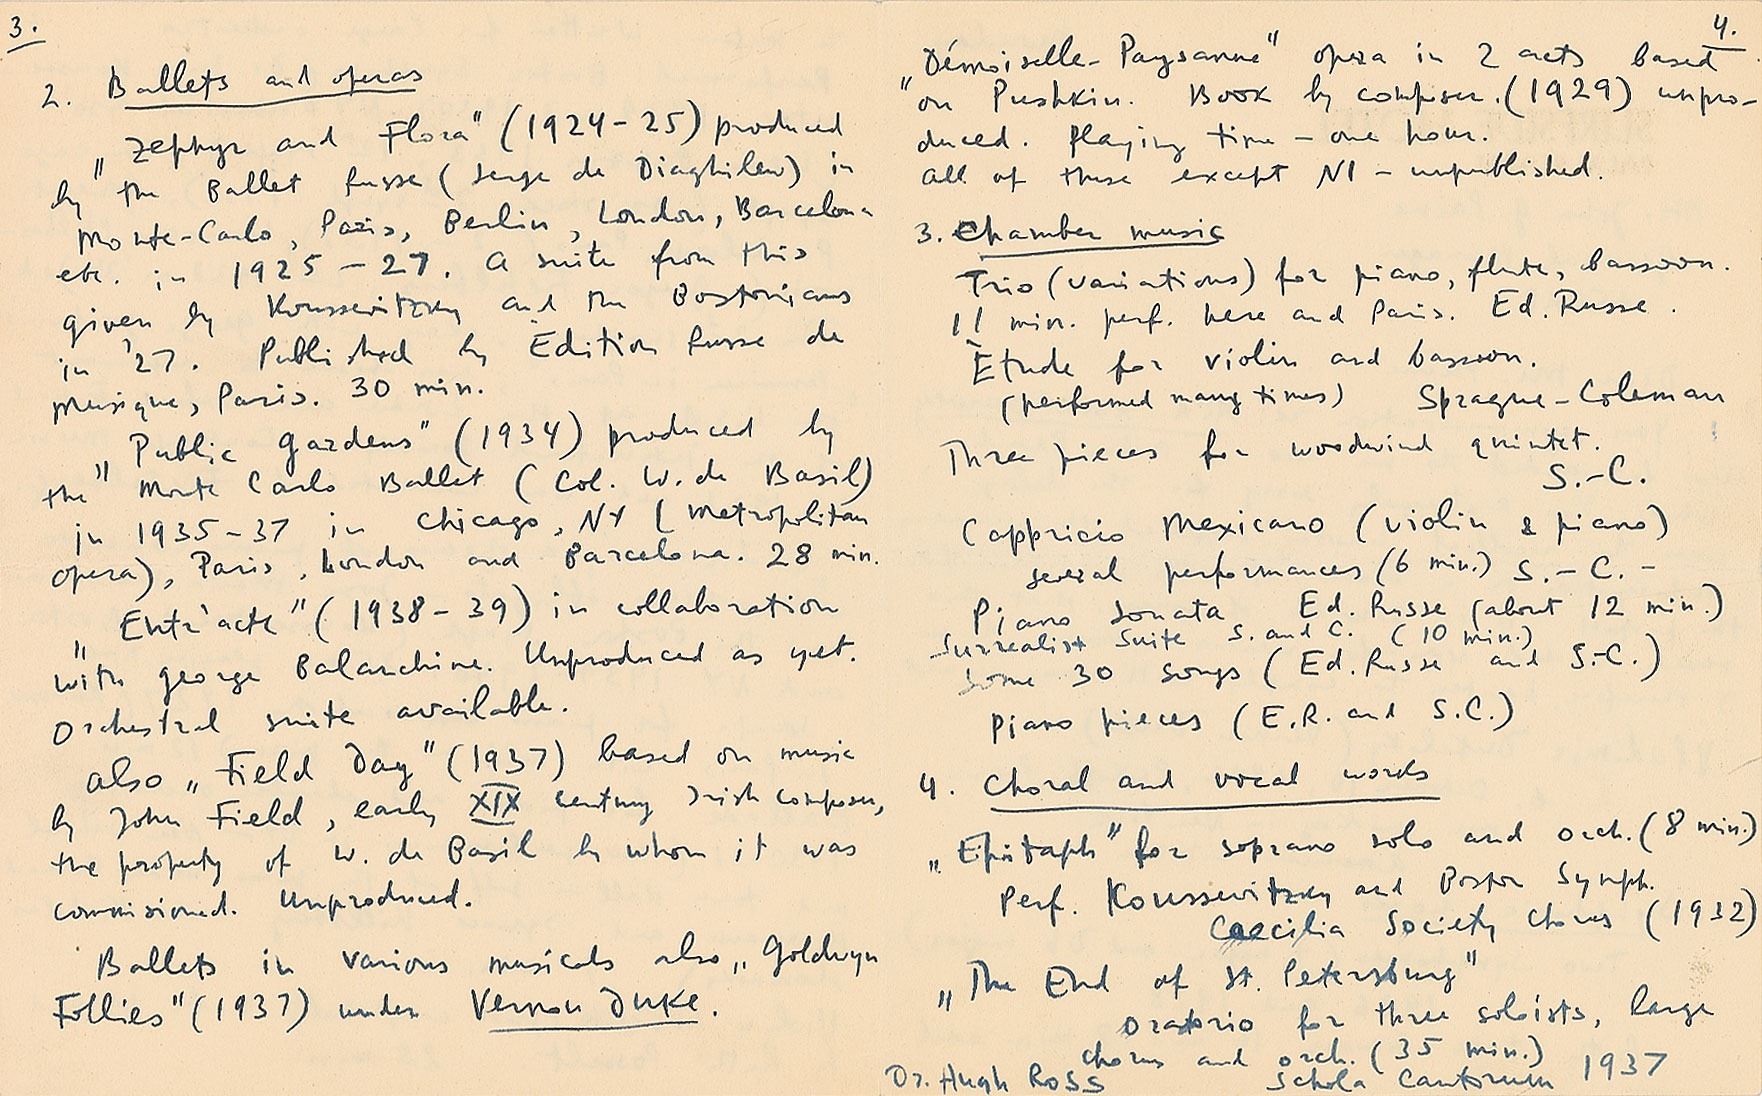 3.
2. Ballets and operas
„Zephyr and Flora" (1924-25) produced
by the Ballet Russe (Serge de Diaghilew) in
Monte-Carlo, Paris, Berlin, London, Barcelona
etc. in 1925-27. A suite from this
given by Koussevitzky and the Bostonians
in '27. Published by Edition Russe de
Musique, Paris. 30 min.
„Public Gardens" (1934) produced by
the Monte Carlo Ballet (Col. W. de Basil)
in 1935-37 in Chicago, NY (Metropolitan
Opera), Paris, London and Barcelona. 28 min.
„Entr'acte" (1938-39) in collaboration
with George Balanchine. Unproduced as yet.
Orchestral suite available.
also „Field Day" (1937) based on music
by John Field, early XIX century Irish composer,
the property of W. de Basil by whom it was
commisioned. Unproduced.
Ballets in various musicals also „Goldwyn
Follies" (1937) under Vernon Duke.
4.
„Démoiselle-Paysanne" opera in 2 acts based
on Pushkin. Book by composer. (1929) unpro-
duced. Playing time – one hour.
All of these except N1 – unpublished.
3. Chamber music
Trio (variations) for piano, flute, bassoon.
11 min. perf. here and Paris. Ed. Russe.
Etude for violin and bassoon.
(performed many times) Sprague-Coleman
Three pieces for woodwind quintet.
S.-C.
Cappricio Mexicano (violin & piano)
several performances (6 min.) S.-C.-
Piano Sonata Ed. Russe (about 12 min.)
Surrealist Suite S. and C. (10 min.)
Some 30 songs (Ed. Russe and S.-C.)
Piano pieces (E.R. and S.C.)
4. Choral and vocal words
„Epitaph" for soprano solo and orch. (8 min.)
Perf. Koussevitzky and Boston Symph.
Caecilia Society Chorus (1932)
„The End of St. Petersburg"
Oratorio for three soloists, large
chorus and orch. (35 min.)
Dr. Hugh Ross Schola Cantorum 1937